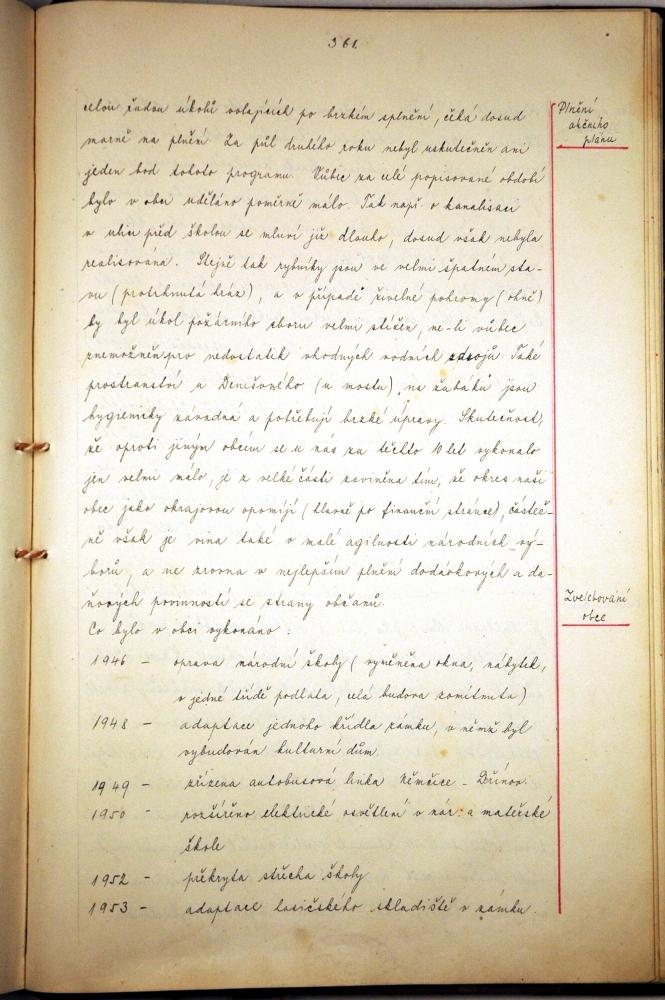 361.
celou řadou úkolů volajících po brzkém splnění, čeká dosud
Plnění
akčního
plánu
marně na plnění. Za půl druhého roku nebyl uskutečněn ani
jeden bod tohoto programu. Vůbec za celé popisované období
bylo v obci uděláno poměrně málo. Tak např. o kanalisaci
v ulici před školou se mluví již dlouho, dosud však nebyla
realisována. Stejně tak rybníky jsou ve velmi špatném sta-
vu (protrhnutá hráz), a v případě živelné pohromy (ohně)
by byl úkol požárního sboru velmi stížen, ne-li vůbec
znemožněn pro nedostatek vhodných vodních zdrojů. Také
prostranství u Denišového (u mostu), na žabáku jsou
hygienicky závadná a potřebují brzké úpravy. Skutečnost,
že oproti jiným obcem se u nás za těchto 10 let vykonalo
jen velmi málo, je z velké části zaviněna tím, že okres naši
obec jako okrajovou opomíjí (hlavně po finanční stránce), částeč-
ně však je vina také v malé agilnosti národních vý-
borů, a ne zrovna v nejlepším plnění dodávkových a da-
ňových povinností se strany občanů.
Zvelebování
obce
Co bylo v obci vykonáno:
1946 - oprava národní školy (vyměněna okna, nábytek,
v jedné třídě podlaha, celá budova zomítnuta)
1948 - adaptace jednoho křídla zámku, v němž byl
vybudován kulturní dům.
1949 - zřízena autobusová linka Němčice - Dřínov.
1950 - rozšířeno elektrické osvětlení v nár. a mateřské
škole
1952 - překryta střecha školy
1953 - adaptace hasičského skladiště v zámku.